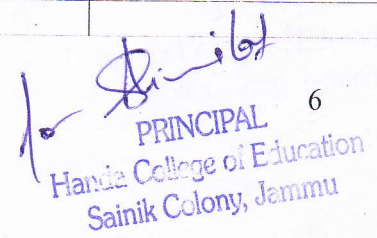 6
PRINCIPAL
Handa College of Education
Sainik Colony, Jammu